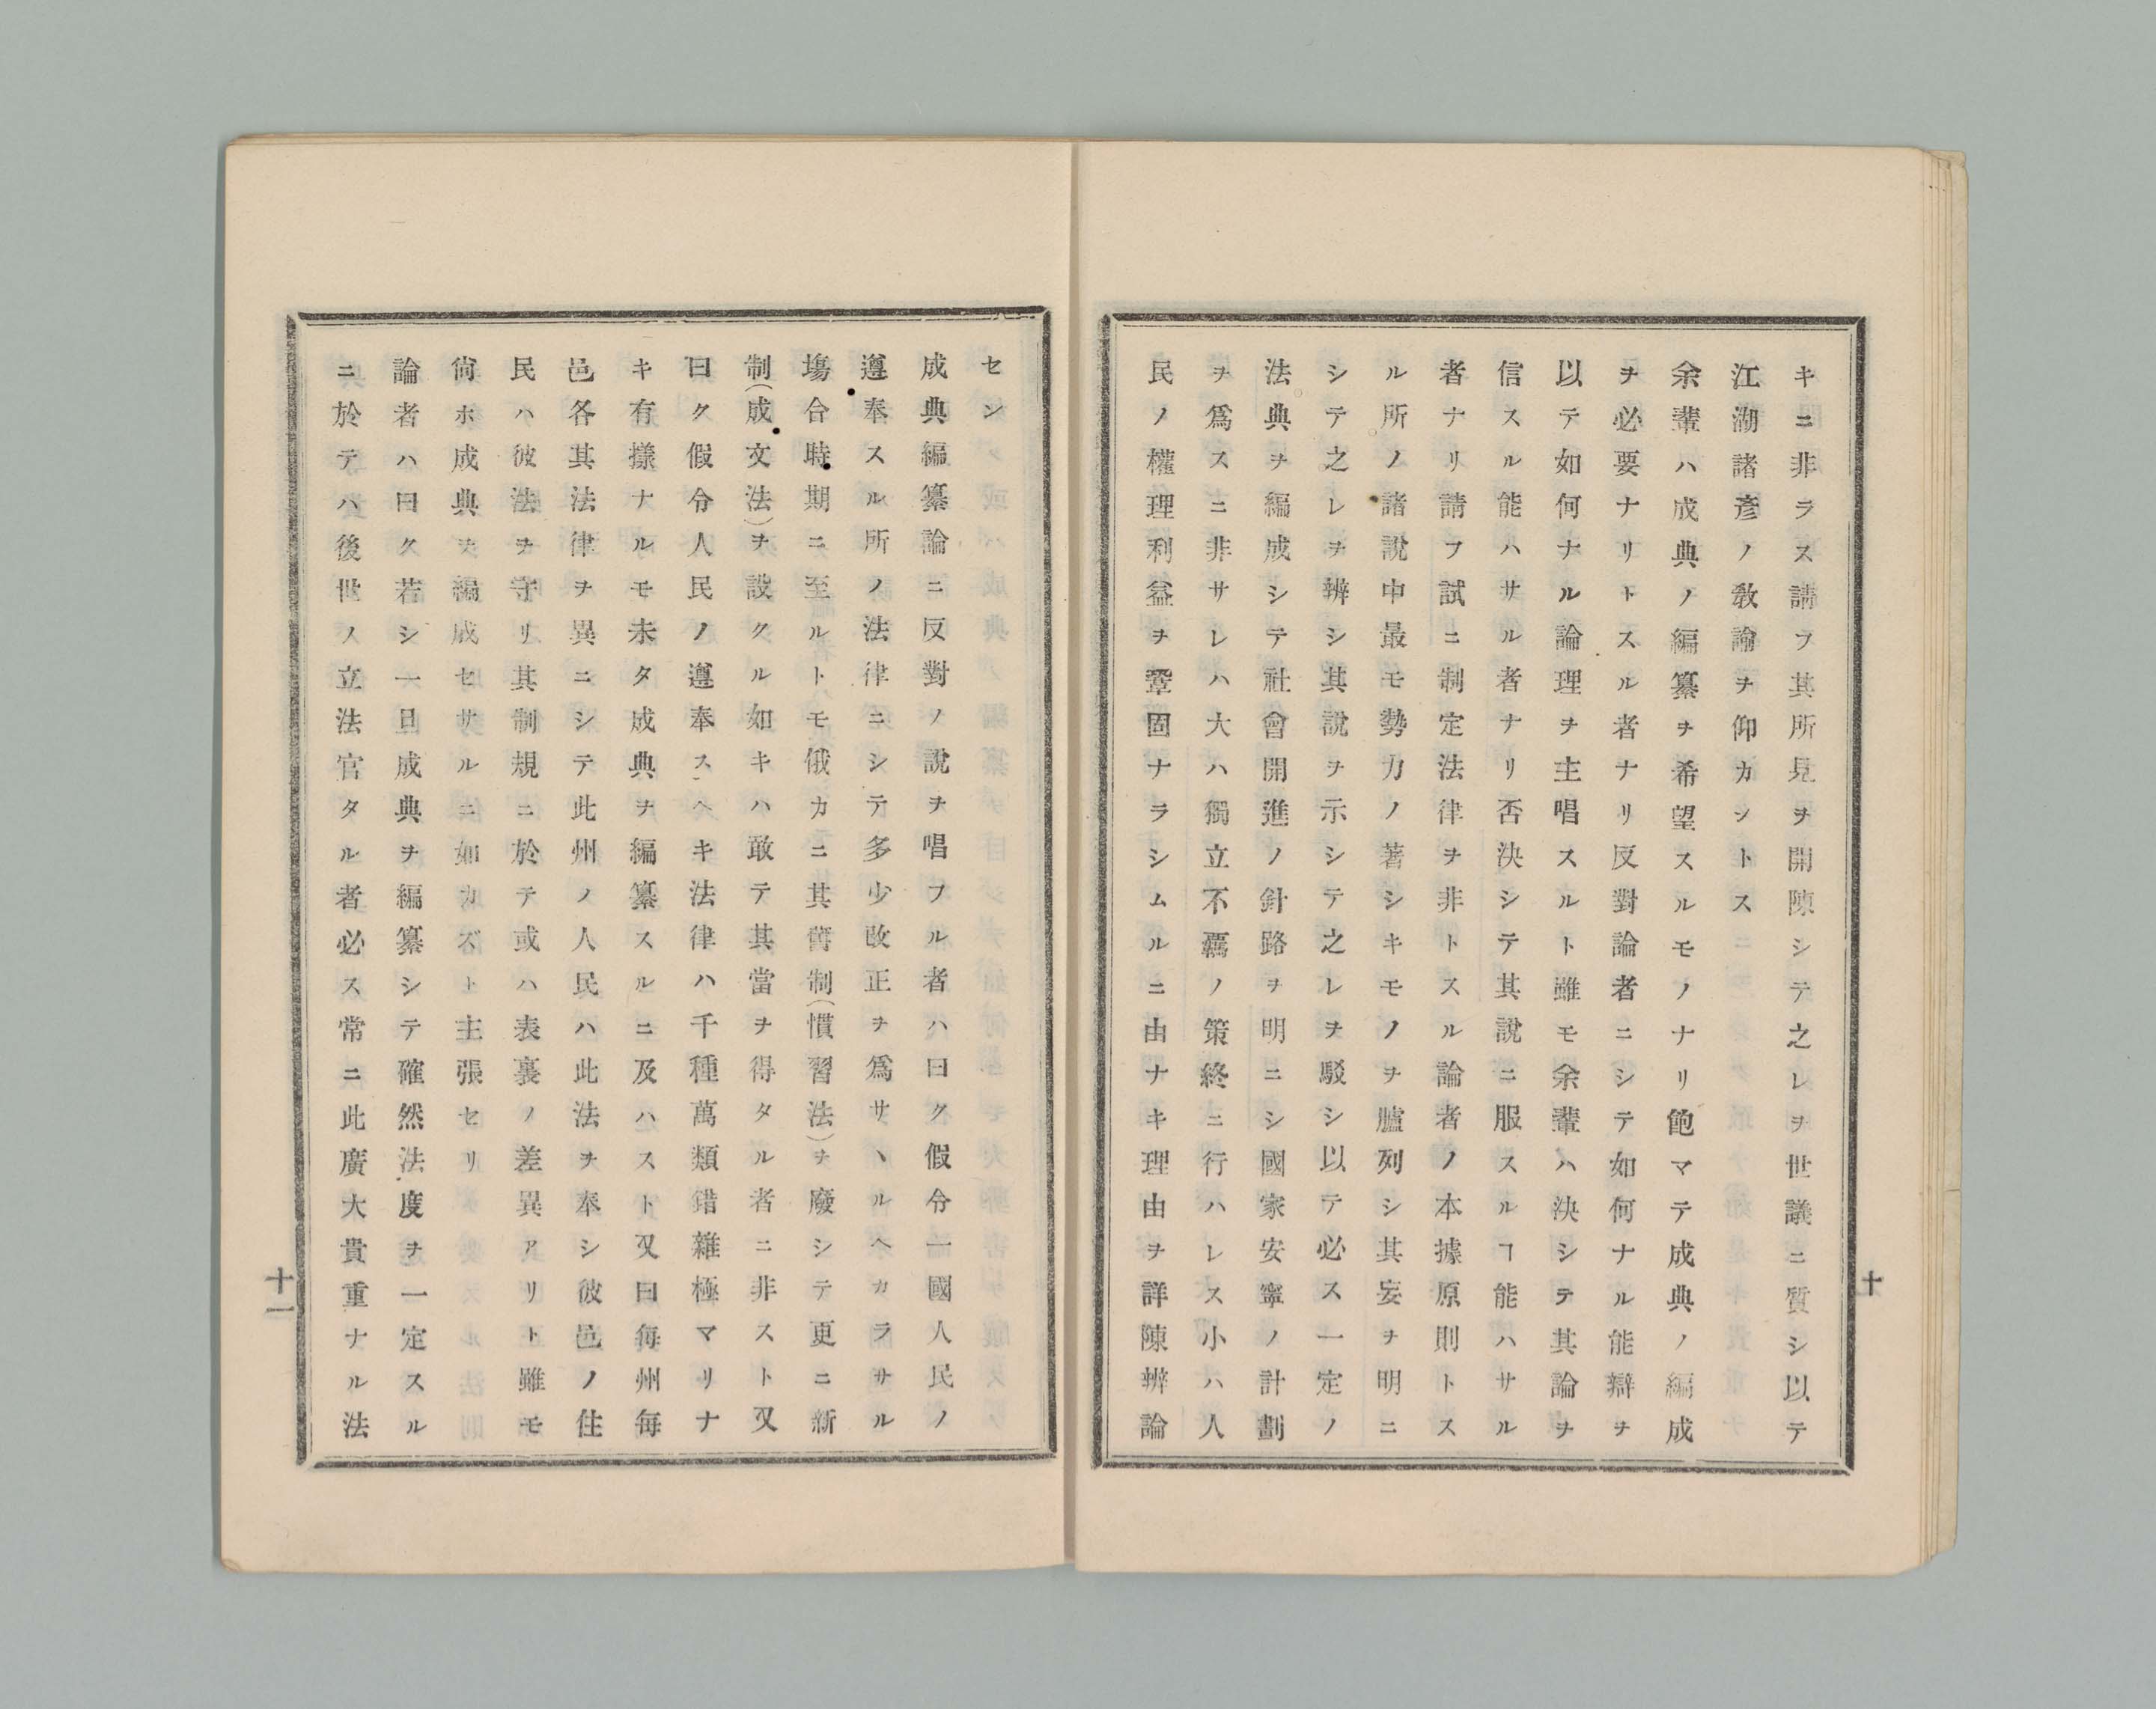 キニ非ラス請フ其所見ヲ開陳シテ之レヲ世議ニ質シ以テ
江湖諸彥ノ敎諭ヲ仰カントス
余輩ハ成典ノ編纂ヲ希望スルモノナリ飽マテ成典ノ編成
ヲ必要ナリトスル者ナリ反對論者ニシテ如何ナル能辯ヲ
以テ如何ナル論理ヲ主唱スルト雖モ余輩ハ決シテ其論ヲ
信スル能ハサル者ナリ否決シテ其說ニ服スルヿ能ハサル
者ナリ請フ試ニ制定法律ヲ非トスル論者ノ本據原則トス
ル所ノ諸說中最モ勢力ノ著シキモノヲ臚列シ其妄ヲ明ニ
シテ之レヲ辨シ其說ヲ示シテ之レヲ駁シ以テ必ス一定ノ
法典ヲ編成シテ社會開進ノ針路ヲ明ニシ國家安寧ノ計劃
ヲ爲スニ非サレハ大ハ獨立不羈ノ策終ニ行ハレス小ハ人
民ノ權理利益ヲ鞏固ナラシムルニ由ナキ理由ヲ詳陳辨論
十
セン
成典編纂論ニ反對ノ說ヲ唱フル者ハ曰ク假令一國人民ノ
遵奉スル所ノ法律ニシテ多少改正ヲ爲サヽルヘカラサル
塲合時期ニ至ルトモ俄カニ其舊制(慣習法)ヲ廢シテ更ニ新
制(成文法)ヲ設クル如キハ敢テ其當ヲ得タル者ニ非スト又
曰ク假令人民ノ遵奉スヘキ法律ハ千種萬類錯雜極マリナ
キ有樣ナルモ未タ成典ヲ編纂スルニ及ハスト又曰每州每
邑各其法律ヲ異ニシテ此州ノ人民ハ此法ヲ奉シ彼邑ノ住
民ハ彼法ヲ守リ其制規ニ於テ或ハ表裏ノ差異アリト雖モ
尙ホ成典ヲ編成セサルニ如カズト主張セリ
論者ハ曰ク若シ一旦成典ヲ編纂シテ確然法度ヲ一定スル
ニ於テハ後世ノ立法官タル者必ス常ニ此廣大貴重ナル法
十一